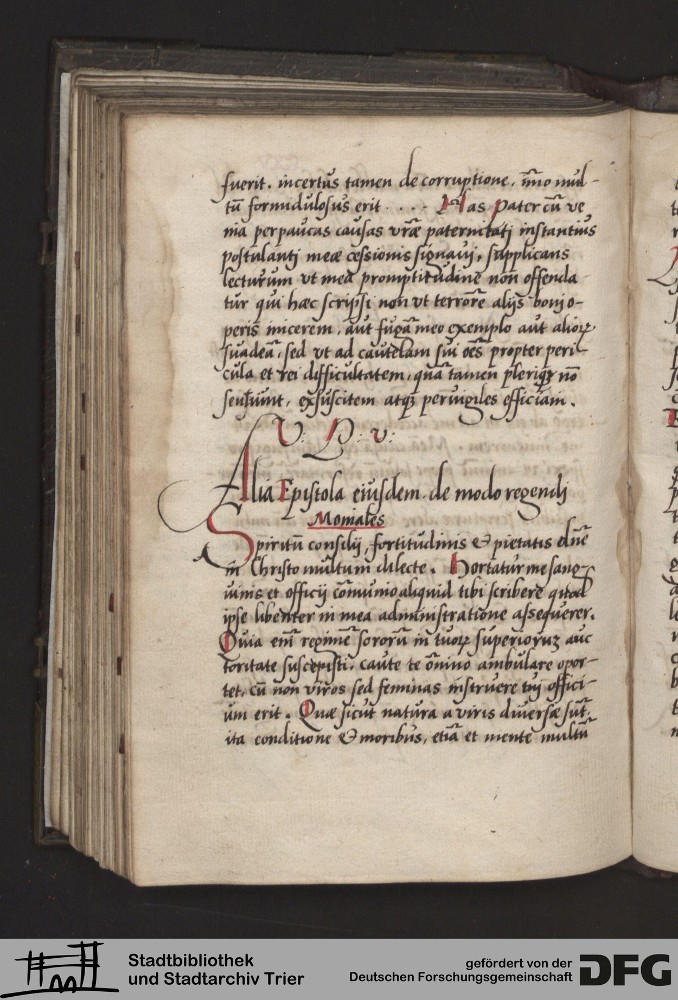 fuerit. incertus tamen de corruptione. īmo mul-
tū formidulosus erit . . . - Has pater cū ve
nia perpaucas causas vrāe paternitati instantius
postulanti meae cessionis signavi, supplicans
lecturum vt mea promptitudine non offenda
tur qui haec scripsi non vt terrorē alijs boni o-
peris inicerem, aut fugā meo exemplo aut aliorꝝ
suadeā, sed vt ad cautelam sui oēs propter peri-
cula et rei difficultatem, quā tamen plerique nō
senserunt, exsuscitem atque pervigiles efficiam.
V: P: v:
Alia Epistola eiusdem de modo regendi
Moniales
Spiritū consilij, fortitudinis & pietatis dnē
in Christo multum dilecte. Hortatur me sang-
uinis et officij cōmunio aliquid tibi scribere quod
ipse libenter in mea administratione assequerer.
Quia eni regimē sororū in tuorꝝ superiorum auc
toritate suscepisti. caute te ōmino ambulare opor-
tet, cū non viros sed feminas instruere tui offici-
um erit. Quae sicut natura a viris diversae sūt.
ita conditione & moribus, etiā et mente multū
Stadtbibliothek
und Stadtarchiv Trier
gefördert von der
Deutschen Forschungsgemeinschaft
DFG